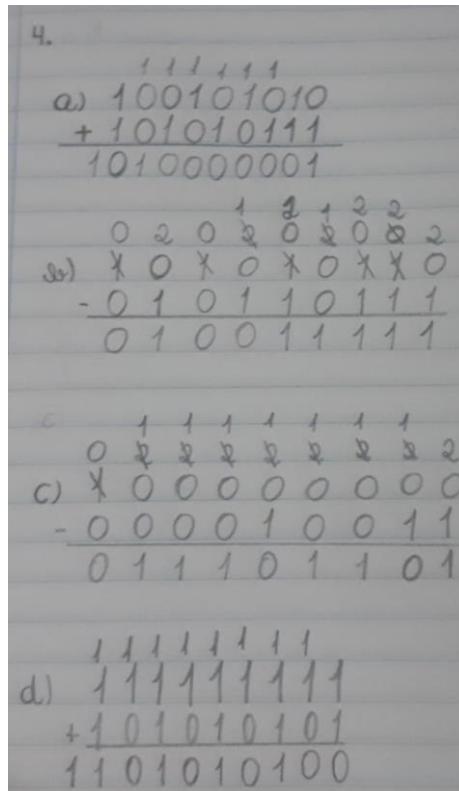 4.
1 1 1 1 1 1
a) 100101010
+ 101010111
1010000001
1 1 1 2 2
0 2 0 2 0 2 0 2 2
b) 1 0 1 0 1 0 1 1 0
- 0 1 0 1 1 0 1 1 1
0 1 0 0 1 1 1 1 1
1 1 1 1 1 1 1
0 2 2 2 2 2 2 2 2
c) 1 0 0 0 0 0 0 0 0
- 0 0 0 0 1 0 0 1 1
0 1 1 1 0 1 1 0 1
1 1 1 1 1 1 1 1
d) 111111111
+ 101010101
1101010100